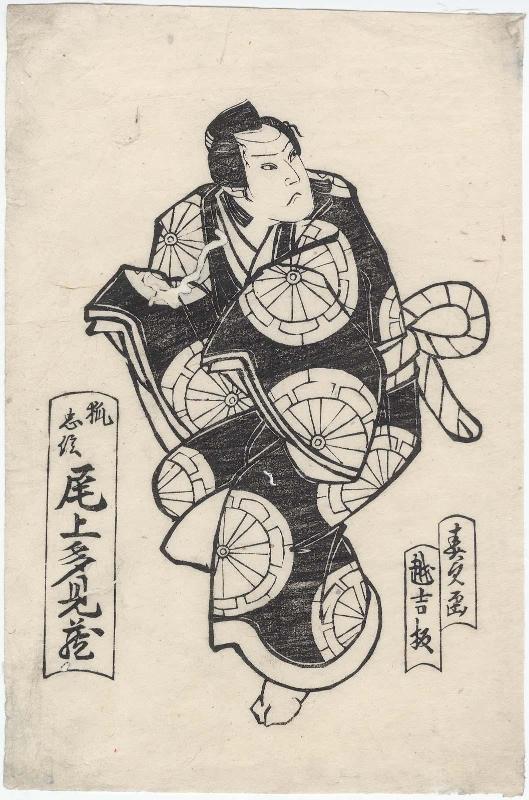 春貞画
越吉板
狐
忠信
尾上多見蔵